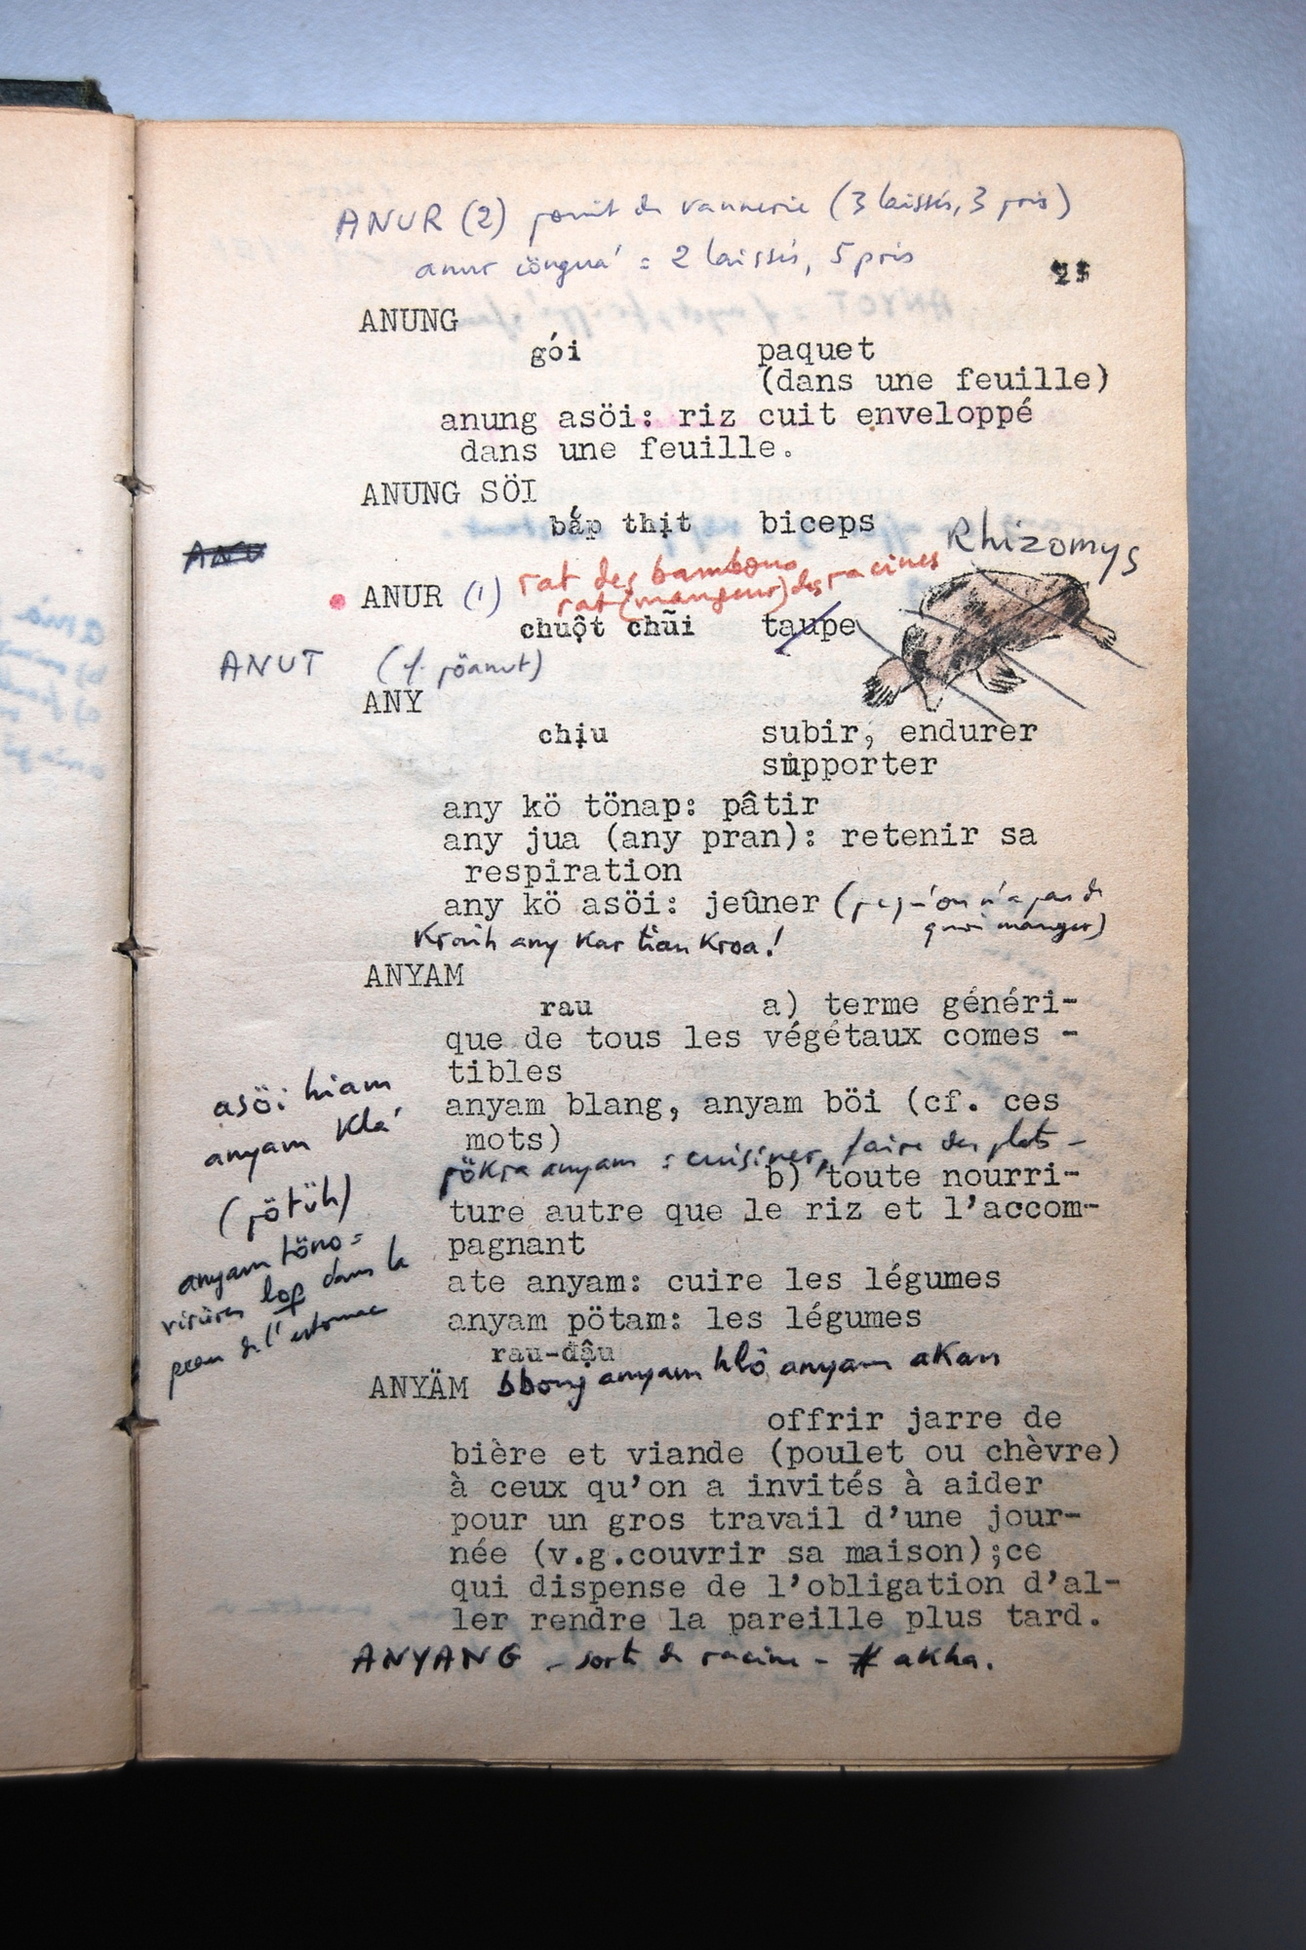 ANUR (2) point de vannerie (3 laissés, 3 pris)
anur cöngua' = 2 laissés, 5 pris
25
ANUNG
gói paquet
(dans une feuille)
anung asöi: riz cuit enveloppé
dans une feuille.
ANUNG SÖI
bắp thịt biceps
Rhizomys
ANU
rat des bambous
ANUR (1) rat (mangeur) des racines
chuột chũi taupe
ANUT (cf. pöanut)
ANY
chịu subir, endurer
supporter
any kö tönap: pâtir
any jua (any pran): retenir sa
respiration
any kö asöi: jeûner (pcqu'on n'a pas de
quoi manger)
any kar tian kroa!
ANYAM
rau a) terme généri-
que de tous les végétaux comes -
tibles
anyam blang, anyam böi (cf. ces
mots)
pökra anyam : cuisiner, faire des plats -
b) toute nourri-
ture autre que le riz et l'accom-
pagnant
ate anyam: cuire les légumes
anyam pötam: les légumes
rau-đậu
asöi hiam
anyam kla'
(pötüh)
anyam töno =
viscères lop dans la
peau de l'estomac
ANYĂM bbong anyam hlô anyam akan
offrir jarre de
bière et viande (poulet ou chèvre)
à ceux qu'on a invités à aider
pour un gros travail d'une jour-
née (v.g.couvrir sa maison);ce
qui dispense de l'obligation d'al-
ler rendre la pareille plus tard.
ANYANG - sorte de racine - # akha.